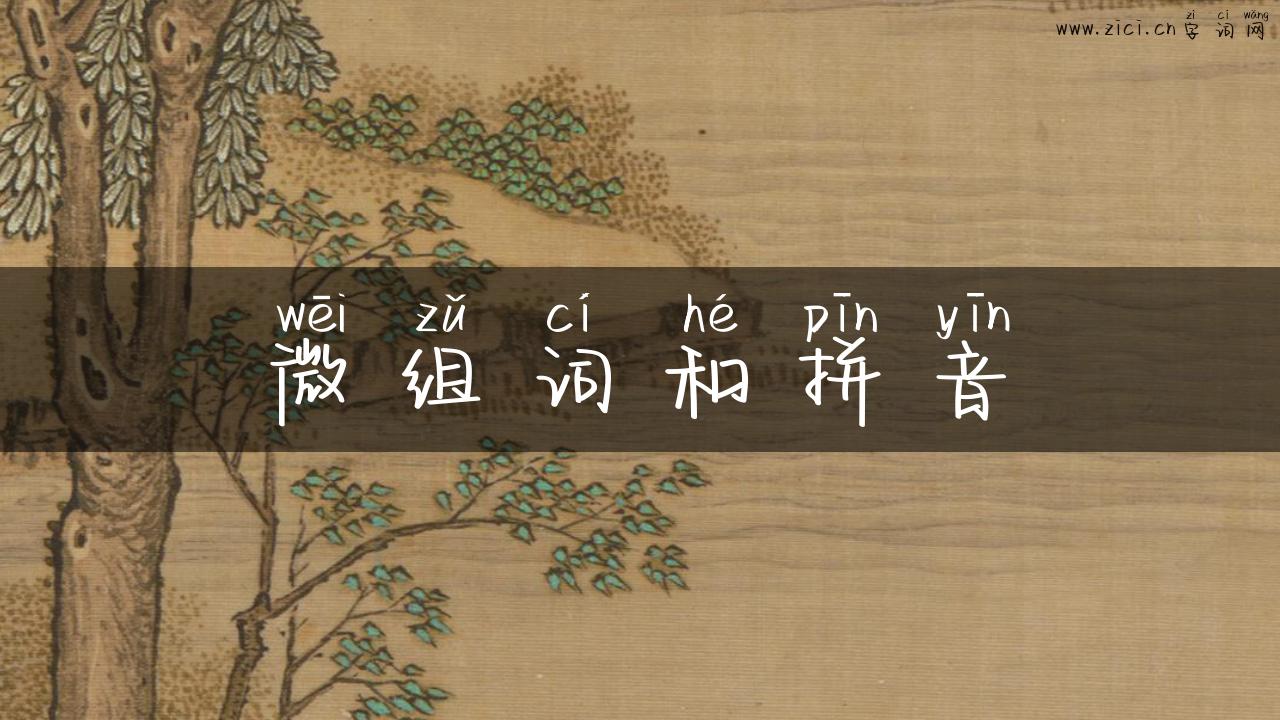 zì cí wǎng
www.zici.cn 字 词 网
wēi zǔ cí hé pīn yīn
微 组 词 和 拼 音